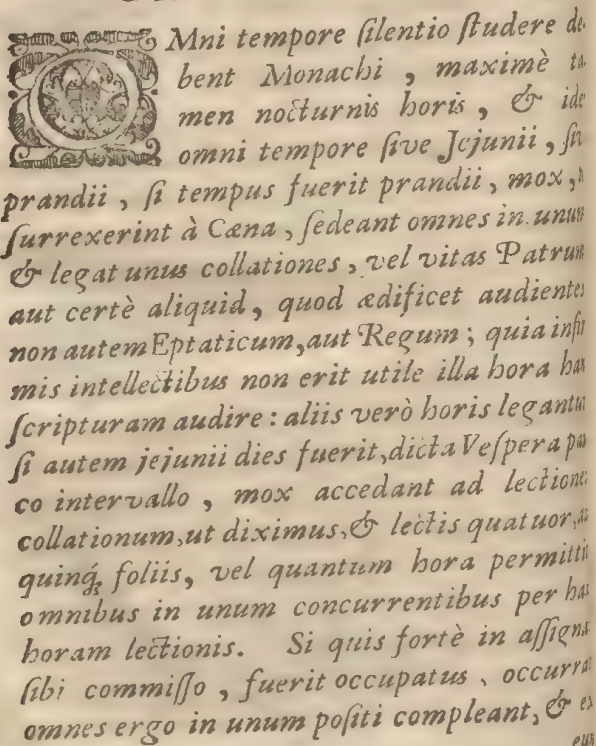 OMni tempore ſilentio ſtudere de-
bent Monachi, maximè ta-
men nocturnis horis, & ide
omni tempore ſive Jejunii, ſi
prandii, ſi tempus fuerit prandii, mox,
ſurrexerint à Cæna, ſedeant omnes in unum
& legat unus collationes, vel vitas Patrum
aut certè aliquid, quod ædificet audientes
non autem Eptaticum, aut Regum; quia infir
mis intellectibus non erit utile illa hora han
ſcripturam audire: aliis verò horis legantur
ſi autem jejunii dies fuerit, dicta Veſpera pau
co intervallo, mox accedant ad lectione
collationum, ut diximus, & lectis quatuor,
quinq́; foliis, vel quantum hora permittit
omnibus in unum concurrentibus per han
horam lectionis. Si quis fortè in aſſigna
ſibi commiſſo, fuerit occupatus, occurrat
omnes ergo in unum poſiti compleant, & ex
eun